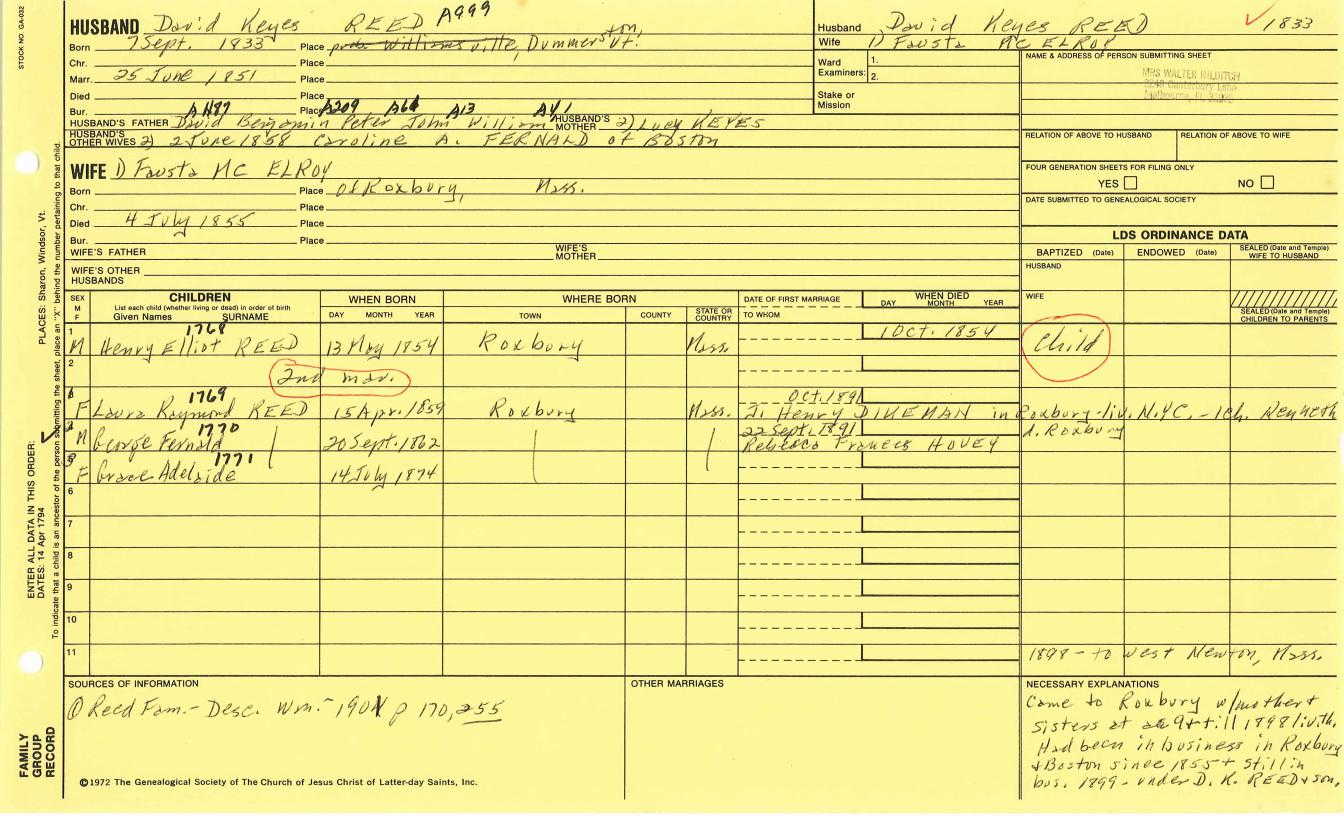 STOCK NO. GA-032
HUSBAND David Keyes REED A999
Born 7 Sept. 1833 Place prob. Williamsville, Dummerston, Vt.
Chr. Place
Marr. 25 June 1851 Place
Died Place
Bur. Place
A487 A209 A66 A13 A4 1
HUSBAND'S FATHER David Benjamin Peter John William HUSBAND'S MOTHER 2) Lucy KEYES
HUSBAND'S OTHER WIVES 2) 2 June 1858 Caroline A. FERNALD of Boston
WIFE D Fausta Mc ELROY
Born Place of Roxbury, Mass.
Chr. Place
Died 4 July 1855 Place
Bur. Place
WIFE'S FATHER WIFE'S MOTHER
WIFE'S OTHER HUSBANDS
Husband David Keyes REED 1833
Wife D Fausta Mc ELROY
Ward Examiners: 1.
2.
Stake or Mission
NAME & ADDRESS OF PERSON SUBMITTING SHEET
MRS WALTER
RELATION OF ABOVE TO HUSBAND RELATION OF ABOVE TO WIFE
FOUR GENERATION SHEETS FOR FILING ONLY
YES NO
DATE SUBMITTED TO GENEALOGICAL SOCIETY
LDS ORDINANCE DATA
BAPTIZED (Date) ENDOWED (Date) SEALED (Date and Temple) WIFE TO HUSBAND
HUSBAND
WIFE
SEALED (Date and Temple) CHILDREN TO PARENTS
SEX M F CHILDREN WHEN BORN WHERE BORN DATE OF FIRST MARRIAGE WHEN DIED
List each child (whether living or dead) in order of birth
Given Names SURNAME DAY MONTH YEAR TOWN COUNTY STATE OR COUNTRY TO WHOM DAY MONTH YEAR
1 1768 1 Oct. 1854
M Henry Elliot REED 13 May 1854 Roxbury Mass. Child
2 2nd mar.
3 1769 Oct. 1891
F Laura Raymond REED 15 Apr. 1859 Roxbury Mass. J. Henry DIKEMAN in Roxbury-liv. N.Y.C. - 1ch. Kenneth
1770 22 Sept. 1891 d. Roxbury
M George Fernald 20 Sept. 1862 Rebecca Frances HOVEY
1771
F Grace Adelaide 14 July 1874
6
7
8
9
10
11 1898 - to West Newton, Mass.
SOURCES OF INFORMATION
① Reed Fam. - Desc. Wm. - 1901 p 170, 255
OTHER MARRIAGES
NECESSARY EXPLANATIONS
Came to Roxbury w/mother +
sisters at 9 + till 1898 liv. th.
Had been in business in Roxbury
+ Boston since 1855 + still in
bus. 1899 - under D. K. REED + son.
©1972 The Genealogical Society of The Church of Jesus Christ of Latter-day Saints, Inc.
FAMILY GROUP RECORD
ENTER ALL DATA IN THIS ORDER:
DATES: 14 Apr 1794 PLACES: Sharon, Windsor, Vt.
To indicate that a child is an ancestor of the person submitting the sheet, place an "X" behind the number pertaining to that child.